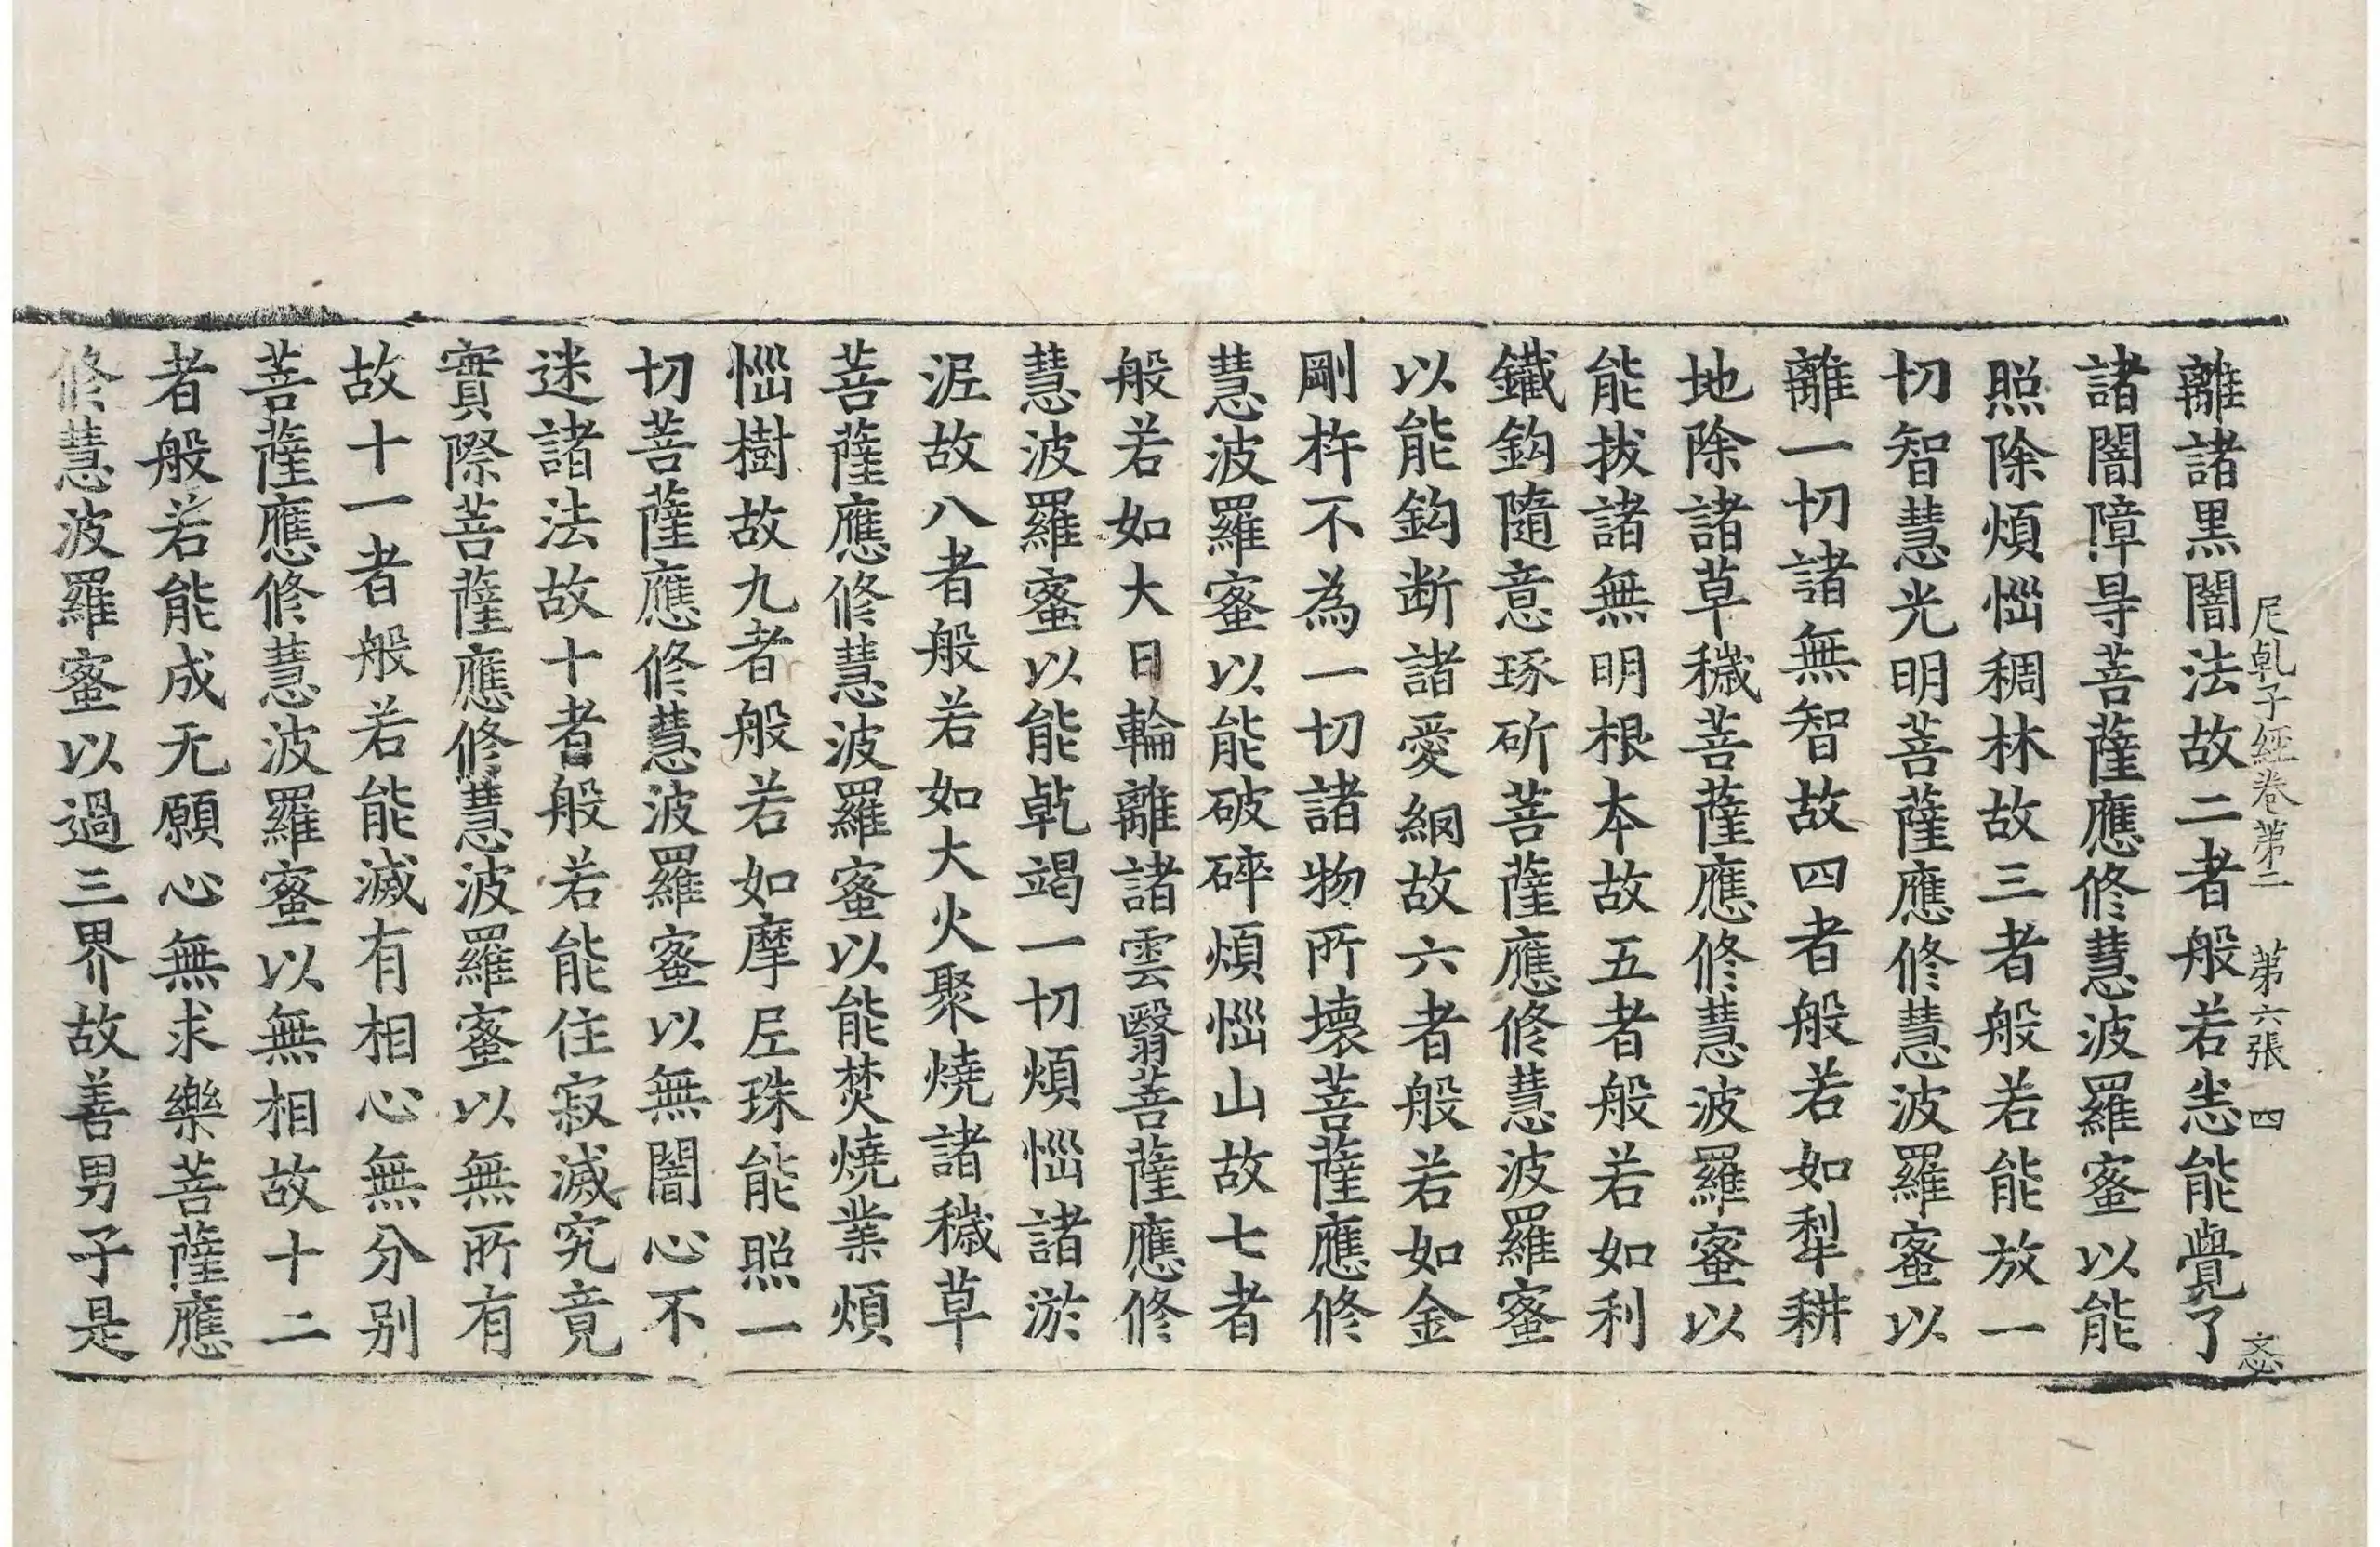 尼乹子經卷第二　第六張　四　㤙
離諸黑闇法故二者般若恙能覺了
諸闇障㝵菩薩應修慧波羅蜜以能
照除煩惱稠林故三者般若能放一
切智慧光明菩薩應修慧波羅蜜以
離一切諸無智故四者般若如犁耕
地除諸草穢菩薩應修慧波羅蜜以
能拔諸無明根本故五者般若如利
鐵鈎隨意琢斫菩薩應修慧波羅蜜
以能鈎斷諸愛網故六者般若如金
剛杵不為一切諸物所壞菩薩應修
慧波羅蜜以能破碎煩惱山故七者
般若如大日輪離諸雲翳菩薩應修
慧波羅蜜以能乹竭一切煩惱諸淤
泥故八者般若如大火聚燒諸穢草
菩薩應修慧波羅蜜以能焚燒業煩
惱樹故九者般若如摩尼珠能照一
切菩薩應修慧波羅蜜以無闇心不
迷諸法故十者般若能住寂滅究竟
實際菩薩應修慧波羅蜜以無所有
故十一者般若能滅有相心無分別
菩薩應修慧波羅蜜以無相故十二
者般若能成无願心無求樂菩薩應
修慧波羅蜜以過三界故善男子是